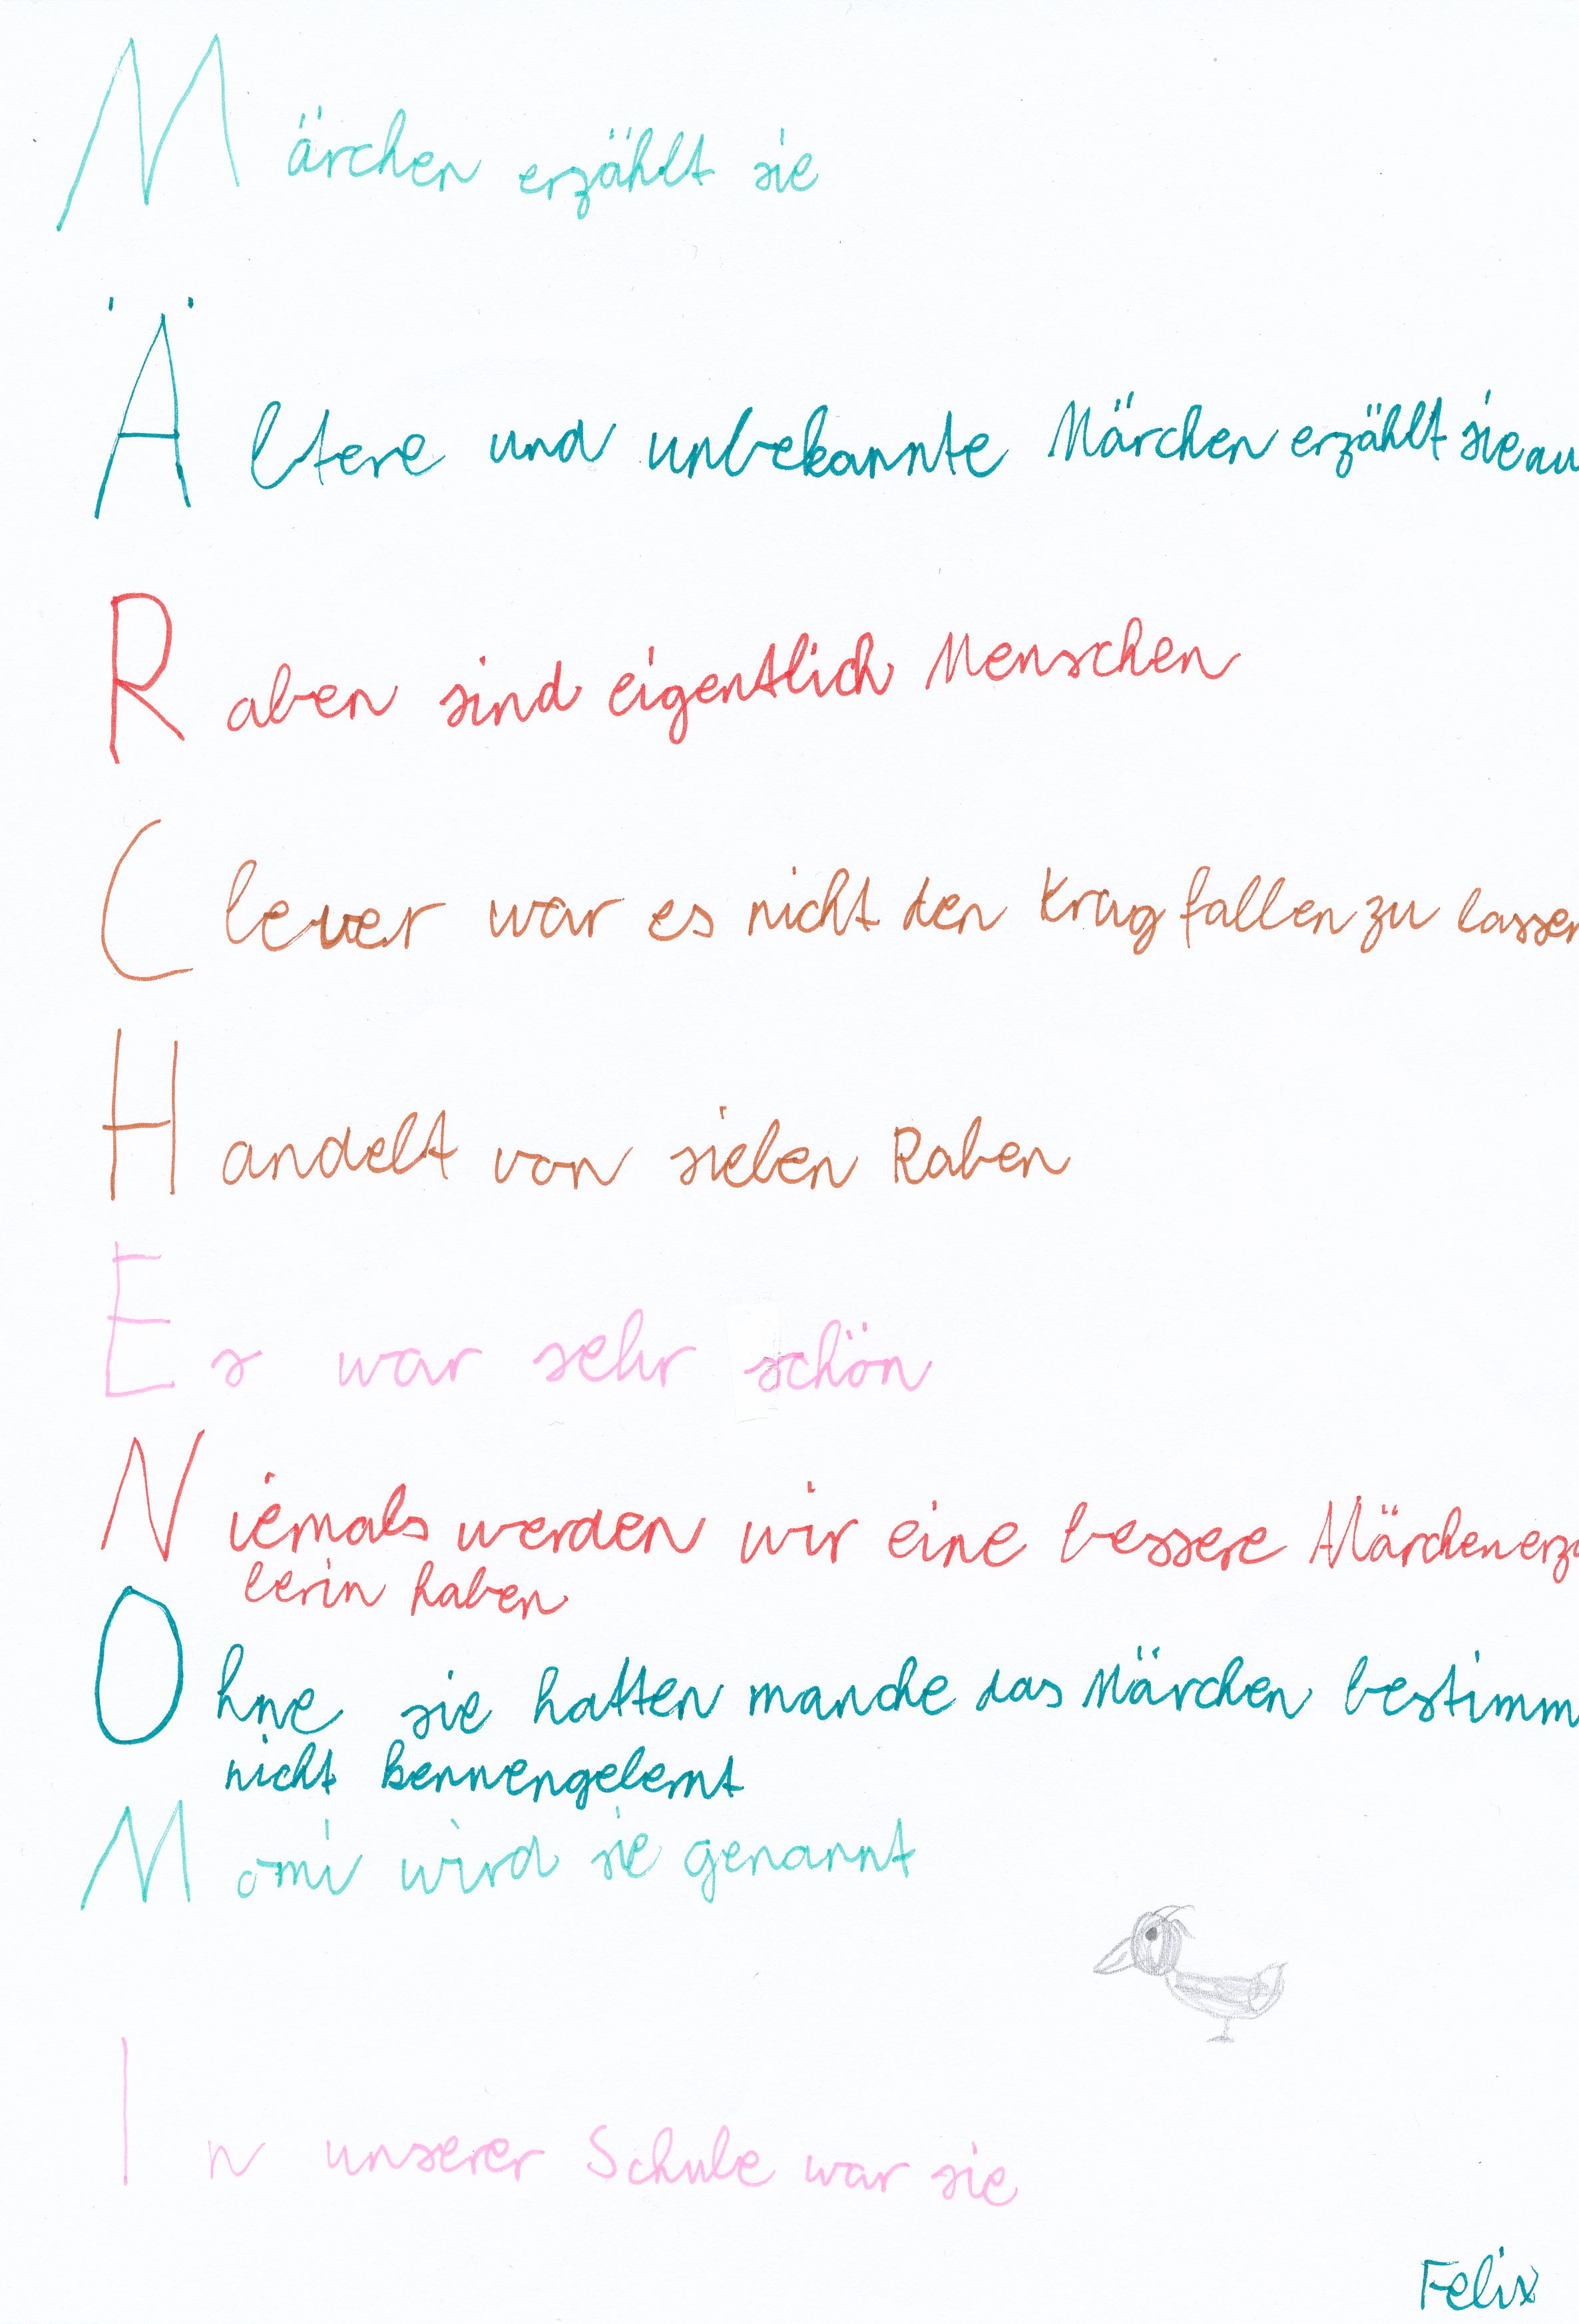 Märchen erzählt sie
Ältere und unbekannte Märchen erzählt sie au
Raben sind eigentlich Menschen
Clever war es nicht den Krug fallen zu lassen
Handelt von sieben Raben
Es war sehr schön
Niemals werden wir eine bessere Märchenerzä
lerin haben
Ohne sie hatten manche das Märchen bestimm
nicht kennengelernt
Momi wird sie genannt
In unserer Schule war sie
Felix